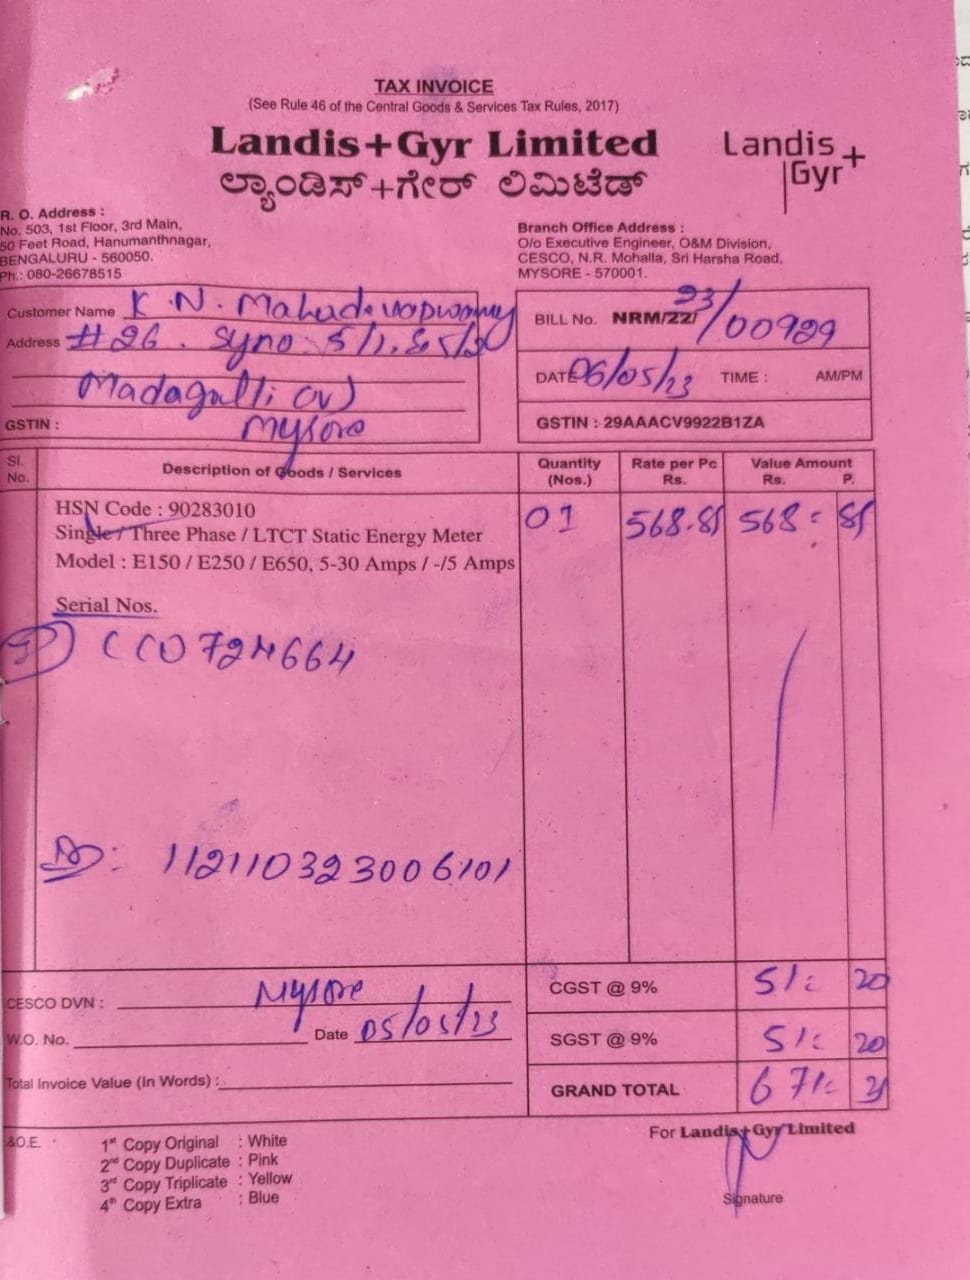 TAX INVOICE
(See Rule 46 of the Central Goods & Services Tax Rules, 2017)
Landis+Gyr Limited
Landis+Gyr
ಲ್ಯಾಂಡಿಸ್+ಗೇರ್ ಲಿಮಿಟೆಡ್
R. O. Address :
No. 503, 1st Floor, 3rd Main,
50 Feet Road, Hanumanthnagar,
BENGALURU - 560050.
Ph.: 080-26678515
Branch Office Address :
O/o Executive Engineer, O&M Division,
CESCO, N.R. Mohalla, Sri Harsha Road,
MYSORE - 570001.
Customer Name K.N.
Address #26. Syno: 5/1,
Madagalli (V)
GSTIN : Mysore
BILL No. NRM/22/ 23/00929
DATE 06/05/23 TIME : AM/PM
GSTIN : 29AAACV9922B1ZA
Sl. No. Description of Goods / Services Quantity (Nos.) Rate per Pc Rs. Value Amount Rs. P.
HSN Code : 90283010 01 568.81 568: 81
Single / Three Phase / LTCT Static Energy Meter
Model : E150 / E250 / E650, 5-30 Amps / -/5 Amps
Serial Nos.
724664
112110323006101
CESCO DVN : Mysore
W.O. No. Date 05/05/23
Total Invoice Value (In Words) :
CGST @ 9% 51: 20
SGST @ 9% 51: 20
GRAND TOTAL 671:
&O.E.
1st Copy Original : White
2nd Copy Duplicate : Pink
3rd Copy Triplicate : Yellow
4th Copy Extra : Blue
For Landis+Gyr Limited
Signature